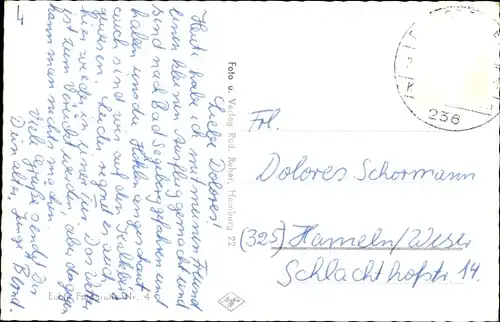 4
Liebe Dolores!
Heute habe ich mit meinem Freund
einen kleinen Ausflug gemacht und
sind nach Bad Segeberg gefahren und
haben uns die Höhlen angeschaut
auch sind wir auf den Kalkberg
gewesen. Leider regnet es auch
hier wieder in einem . Das Wetter
ist zum Verrückt werden, aber dagegen
kann man nichts machen.
Viele Grüße sendet Dir
Dein alter, Bernd.
Foto u. Verlag Rud. Reher, Hamburg 22
Nr. 4
Agfa
236
Frl.
Dolores Schormann
(325) Hameln/Weser
Schlachthofstr. 14.